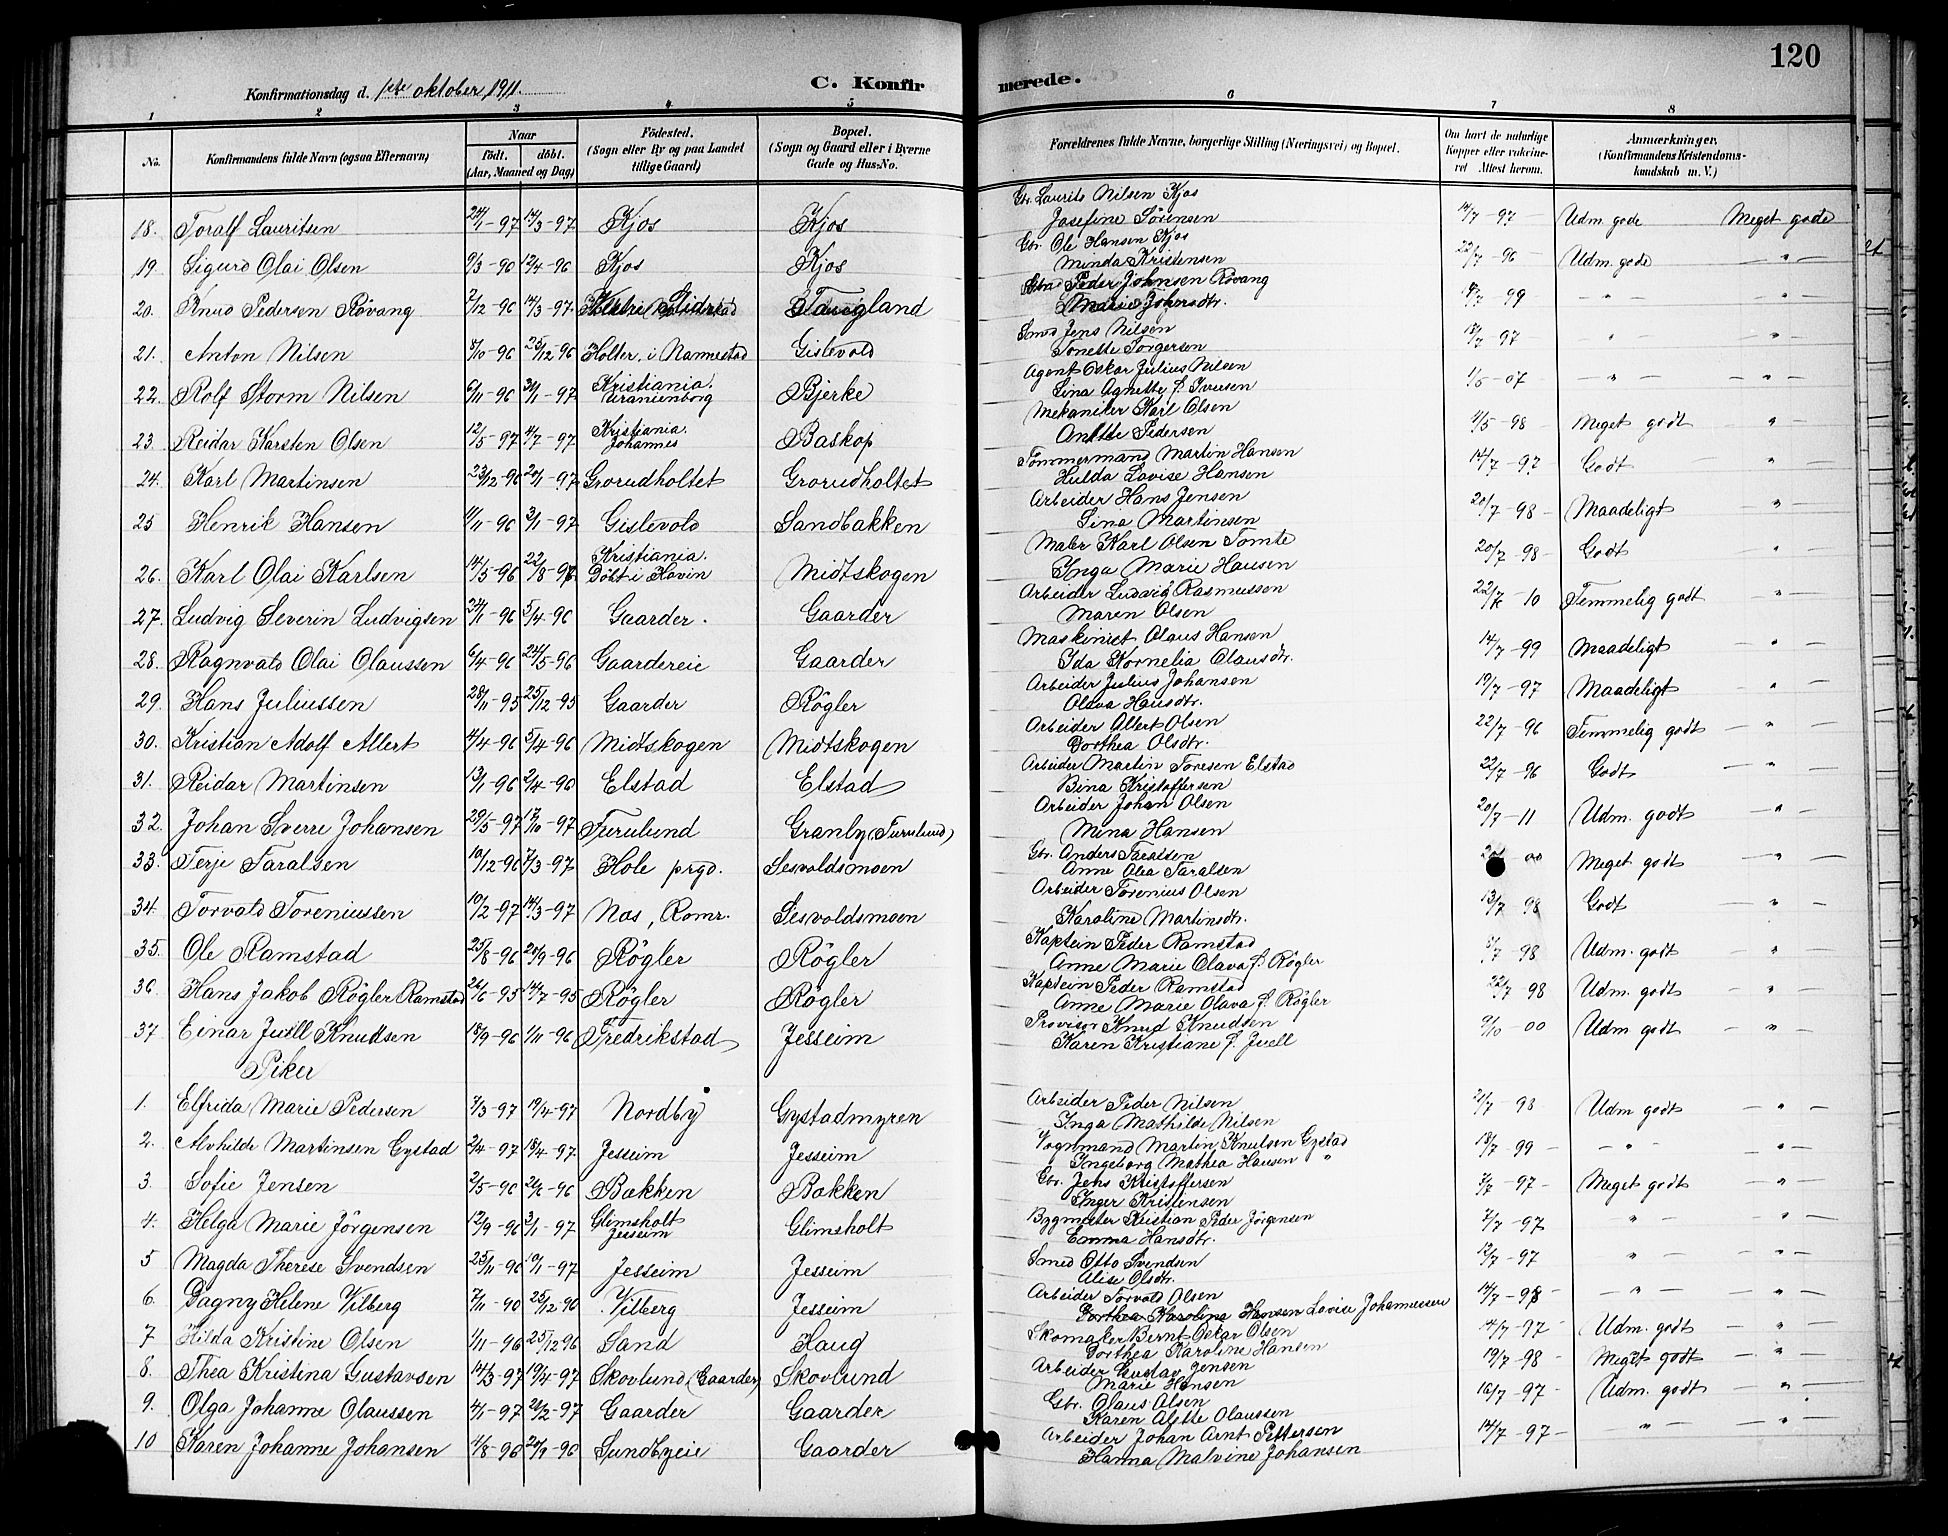 120
Konfirmationsdag d. 1ste oktober 1911.
C. Konfirmerede.
1 2 3 4 5 6 7 8
No. Konfirmandens fulde Navn (ogsaa Efternavn) Naar födt. döbt. (Aar, Maaned og Dag) Födested. (Sogn eller By og paa Landet tillige Gaard) Bopæl. (Sogn og Gaard eller i Byerne Gade og Hus-No.
Forældrenes fulde Navne, borgerlige Stilling (Næringsvei) og Bopæl. Om havt de naturlige Kopper eller vaccineret Attest herom. Anmærkninger. (Konfirmandens Kristendomskundskab m. V.)
18. Toralf Lauritsen 24/1-97 14/3-97 Kjos Kjos Gbr. Laurits Nilsen Kjos
Josefine Sörensen 14/7-97 Udm gode Meget gode
19. Sigurd Olai Olsen 9/3-96 12/4-96 Kjos Kjos Gbr. Ole Hansen Kjos
Minda Kristensen 22/7-96 Udm. gode — " —
20. Knud Pedersen Rövang 7/12-96 14/3-97 Taugland Peder Johnsen Rövang
Marie Johnsdtr. -99 — " — "
21. Anton Nilsen 8/10-96 25/12-96 Holter, i Nannestad Gislevold Smed Jens Nilsen
Tonette Torgersen 18/7-97 — " — "
22. Rolf Storm Nilsen 6/11-96 31/1-97 Kristiania. Uranienborg Bjerke Agent Oskar Julius Nilsen
Lina Agnette f. Iversen 1/5-07 — " — — " —
23. Reidar Karsten Olsen 12/5-97 4/7-97 Kristiania. Johannes Baskop Mekaniker Karl Olsen
Anette Pedersen 4/5-98 Meget godt "
24. Karl Martinsen 23/12-96 20/1-97 Grorudholtet Grorudholtet Tömmermand Martin Hansen
Hulda Lovise Hansen 14/7-97 Godt "
25 Henrik Hansen 11/11-96 3/1-97 Gislevold Sandbakken Arbeider Hans Jensen
Lina Martinsen 20/7-98 Maadeligt — " —
26. Karl Olai Karlsen 14/5-96 22/8-97 Kristiania. Döbt i Hovin Midtskogen Maler Karl Olsen Tomte
Inga Marie Hansen 20/7-98 Godt "
27. Ludvig Severin Ludvigsen 24/1-96 5/4-96 Gaarder. Gaarder Arbeider Ludvig Rasmussen
Maren Olsen 22/7-10 Temmelig godt — " —
28. Ragnvald Olai Olaussen 6/4-96 24/5-96 Gaardereie Gaarder Maskinist Olaus Hansen
Ida Kornelia Olausdtr. 14/7-99 Maadeligt "
29. Hans Juliussen 28/11-95 25/12-95 Gaarder Rögler Arbeider Julius Johansen
Olava Hansdtr. 19/7-97 Maadeligt "
30. Kristian Adolf Albert 4/4-96 5/4-96 Midtskogen Midtskogen Arbeider Albert Olsen
Dorthea Olsdtr. 22/7-96 Temmelig godt — " —
31. Reidar Martinsen 13/1-96 2/4-96 Elstad Elstad Arbeider Martin Toresen Elstad
Bina Kristoffersen 22/7-96 Godt — " —
32. Johan Sverre Johansen 29/5-97 17/10-97 Furulund Granby (Furulund) Arbeider Johan Olsen
Mina Hansen 20/7-11 Udm. godt "
33. Terje Taralsen 10/12-96 7/3-97 Hole prgd. Sesvoldsmoen Gbr. Anders Taralsen
Anne Olea Taralsen 00 Meget godt — " —
34. Torvald Toreniussen 10/2-97 14/3-97 Nas, Romr. Sesvoldsmoen Arbeider Torenius Olsen
Karoline Martinsdtr. 13/7-98 Godt — " —
35. Ole Ramstad 25/8-96 20/9-96 Rögler Rögler Kaptein Peder Ramstad
Anne Marie Olava f. Rögler 8/7-98 Udm. godt "
36. Hans Jakob Rögler Ramstad 26/6-95 14/7-95 Rögler Rögler Kaptein Peder Ramstad
Anne Marie Olava f. Rögler 22/7-98 Udm. godt — " —
37 Einar Juell Knudsen 18/9-96 1/11-96 Fredrikstad Jesseim Provisor Knud Knudsen
Karen Kristiane f. Juell 9/10-00 Udm godt — " —
Piker
1. Elfrida Marie Pedersen 7/3-97 19/4-97 Nordby Gystadmyren Arbeider Peder Nilsen
Inga Mathilde Nilsen 21/7-98 Udm godt — " —
2. Alvhilde Martinsen Gystad 2/4-97 18/4-97 Jesseim Jesseim Vognmand Martin Knutsen Gystad
Ingeborg Mathea Hansen " 18/7-99 — " — — " —
3. Sofie Jensen 2/5-96 21/6-96 Bakken Bakken Gbr. Jens Kristoffersen
Inger Kristensen 3/7-97 Meget godt — " —
4. Helga Marie Jörgensen 12/9-96 3/1-97 Glimsholt Jesseim Glimsholt Bygmester Kristian Peder Jörgensen
Emma Hansdtr. 7/7-97 " — " —
5 Magda Therese Svendsen 25/11-96 10/1-97 Jesseim Jesseim Smed Otto Svendsen
Alise Olsdtr. 12/7-97 " — " —
6. Dagny Helene Vilberg 7/11-96 25/12-96 Vilberg Jesseim Arbeider Torvald Olsen
Dorthea Karolina Hansen Lovise Johannessen 14/7-98 — " — — " —
7 Hilda Kristine Olsen 1/11-96 25/12 96 Sand Haug Skomaker Bernt Oskar Olsen
Dorthea Karoline Hansen 14/7-97 Udm. godt — " —
8. Thea Kristina Gustavsen 14/3-97 19/4-97 Skovlund (Gaarder) Skovlund Arbeider Gustav Jensen
Marie Hansen 19/7-98 Meget godt — " —
9. Olga Johanne Olaussen 4/1-97 21/2-97 Gaarder Gaarder Gbr. Olaus Olsen
Karen Alette Olaussen 16/7-97 Udm. godt — " —
10 Karen Johanne Johansen 4/8-96 27/9-96 Sundbyeie Gaarder Arbeider Johan Arnt Pettersen
Hanna Malvine Johansen 14/7-97 " — " —